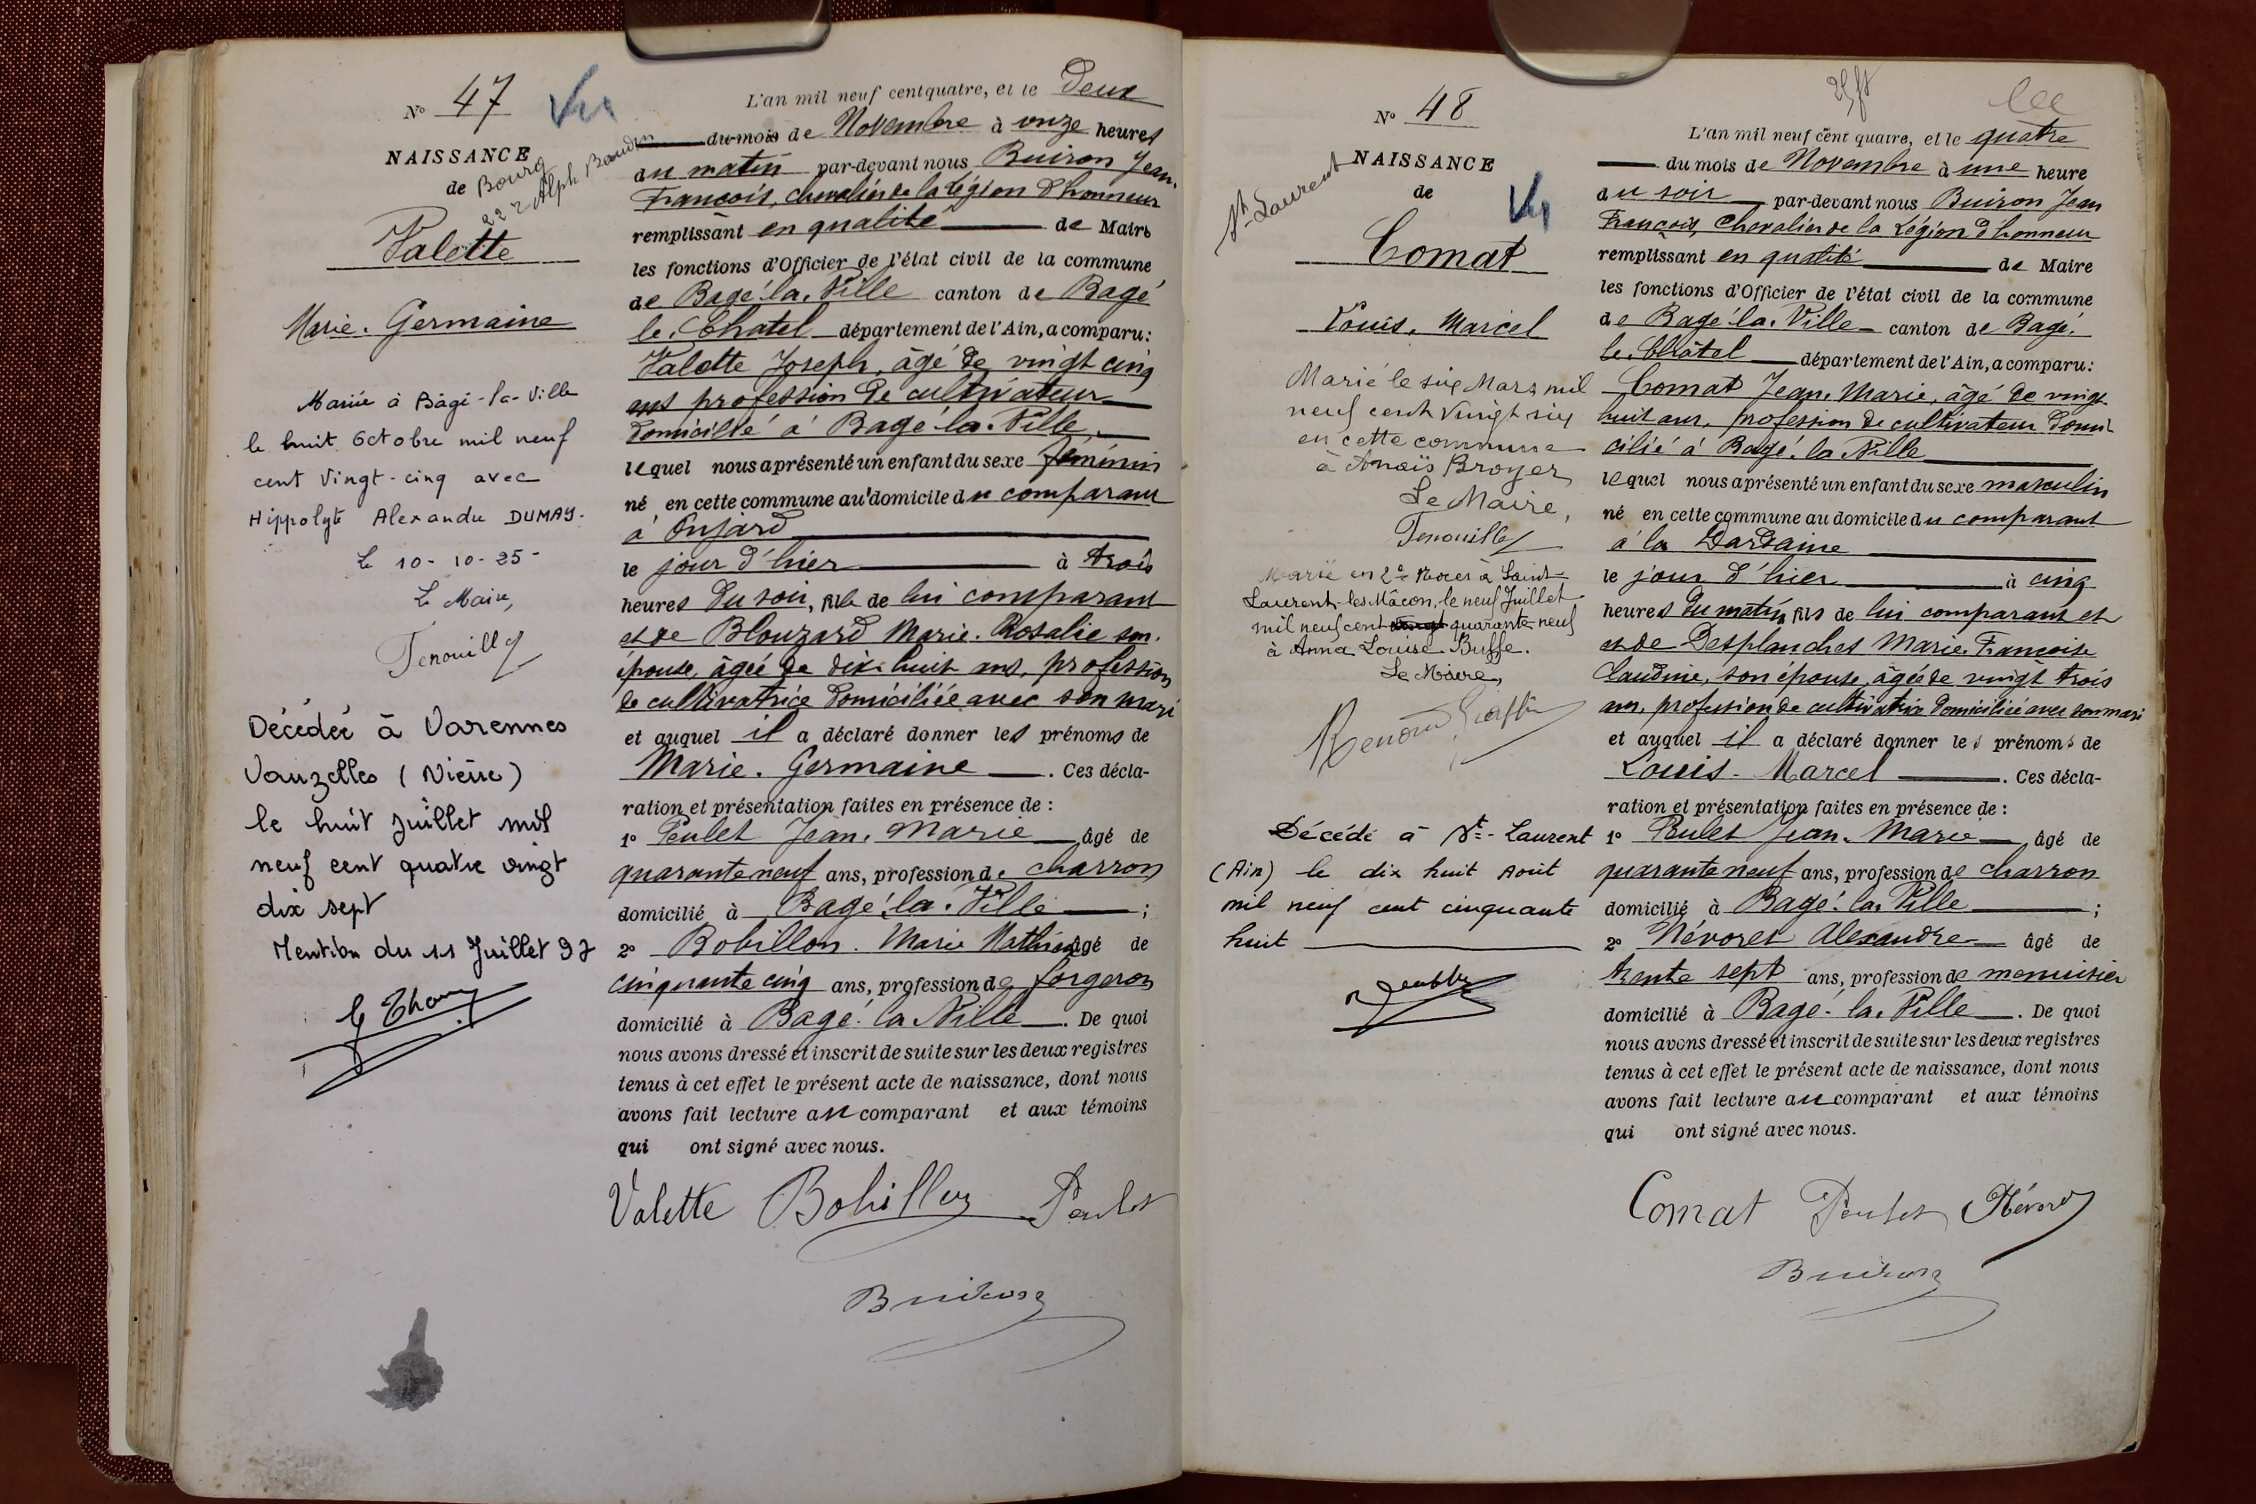 N° 47
Vu
NAISSANCE
de Bourg
22 r Alph Baudin
Valette
Marie. Germaine
Mariée à Bâgé-la-Ville
le huit Octobre mil neuf
cent Vingt-cinq avec
Hippolyte Alexandre DUMAY.
Le 10-10-25-
Le Maire,
Fenouillet
Décédée à Varennes
Vauzelles (Nièvre)
le huit juillet mil
neuf cent quatre vingt
dix sept
Mention du 11 Juillet 97
L'an mil neuf cent quatre, et le deux
du mois de Novembre à onze heures
du matin par-devant nous Buiron Jean.
François, chevalier de la légion d'honneur
remplissant en qualité de Maire
les fonctions d'Officier de l'état civil de la commune
de Bagé-la-Ville canton de Bagé
le. Chatel département de l'Ain, a comparu:
Valette Joseph, âgé de vingt cinq
ans profession de cultivateur
domicilié à Bagé-la-Ville.
lequel nous a présenté un enfant du sexe féminin
né en cette commune au domicile du comparant
à Onjard
le jour d'hier à trois
heures du soir, fille de lui comparant
et de Blouzard Marie. Rosalie son.
épouse, âgée de dix-huit ans, profession
de cultivatrice domiciliée avec son mari
et auquel il a déclaré donner les prénoms de
Marie. Germaine. Ces décla-
ration et présentation faites en présence de :
1° Peulet Jean. Marie âgé de
quarante neuf ans, profession de charron
domicilié à Bagé-la-Ville ;
2° Bobillon. Marie Mathieu âgé de
cinquante cinq ans, profession de forgeron
domicilié à Bagé-la-Ville. De quoi
nous avons dressé et inscrit de suite sur les deux registres
tenus à cet effet le présent acte de naissance, dont nous
avons fait lecture au comparant et aux témoins
qui ont signé avec nous.
Valette Bobillon Peulet
Buiron
N° 48
St Laurent
NAISSANCE
de
Vu
Comat
Louis. Marcel
Marié le six Mars mil
neuf cent vingt six
en cette commune
à Anaïs Broyer
Le Maire,
Fenouillet
Marié en 2e Noces à Saint-
Laurent-les-Mâcon, le neuf Juillet
mil neuf cent vingt quarante neuf
à Anna Louise Buffe.
Le Maire,
Décédé à St-Laurent
(Ain) le dix huit Août
mil neuf cent cinquante
huit
L'an mil neuf cent quatre, et le quatre
du mois de Novembre à une heure
du soir par-devant nous Buiron Jean
François, Chevalier de la Légion d'honneur
remplissant en qualité de Maire
les fonctions d'Officier de l'état civil de la commune
de Bagé-la-Ville canton de Bagé.
le. Châtel département de l'Ain, a comparu:
Comat Jean. Marie, âgé de vingt
huit ans, profession de cultivateur domi-
cilié à Bagé-la-Ville
lequel nous a présenté un enfant du sexe masculin
né en cette commune au domicile du comparant
à la Dardaine
le jour d'hier à cinq
heures du matin, fils de lui comparant et
et de Desplanches Marie. Françoise
Claudine, son épouse, âgée de vingt trois
ans, profession de cultivatrice domiciliée avec son mari
et auquel il a déclaré donner les prénoms de
Louis-Marcel. Ces décla-
ration et présentation faites en présence de :
1° Peulet Jean-Marie âgé de
quarante neuf ans, profession de charron
domicilié à Bagé-la-Ville ;
2° Névoret Alexandre âgé de
trente sept ans, profession de menuisier
domicilié à Bagé-la-Ville. De quoi
nous avons dressé et inscrit de suite sur les deux registres
tenus à cet effet le présent acte de naissance, dont nous
avons fait lecture au comparant et aux témoins
qui ont signé avec nous.
Comat Peulet Névoret
Buiron